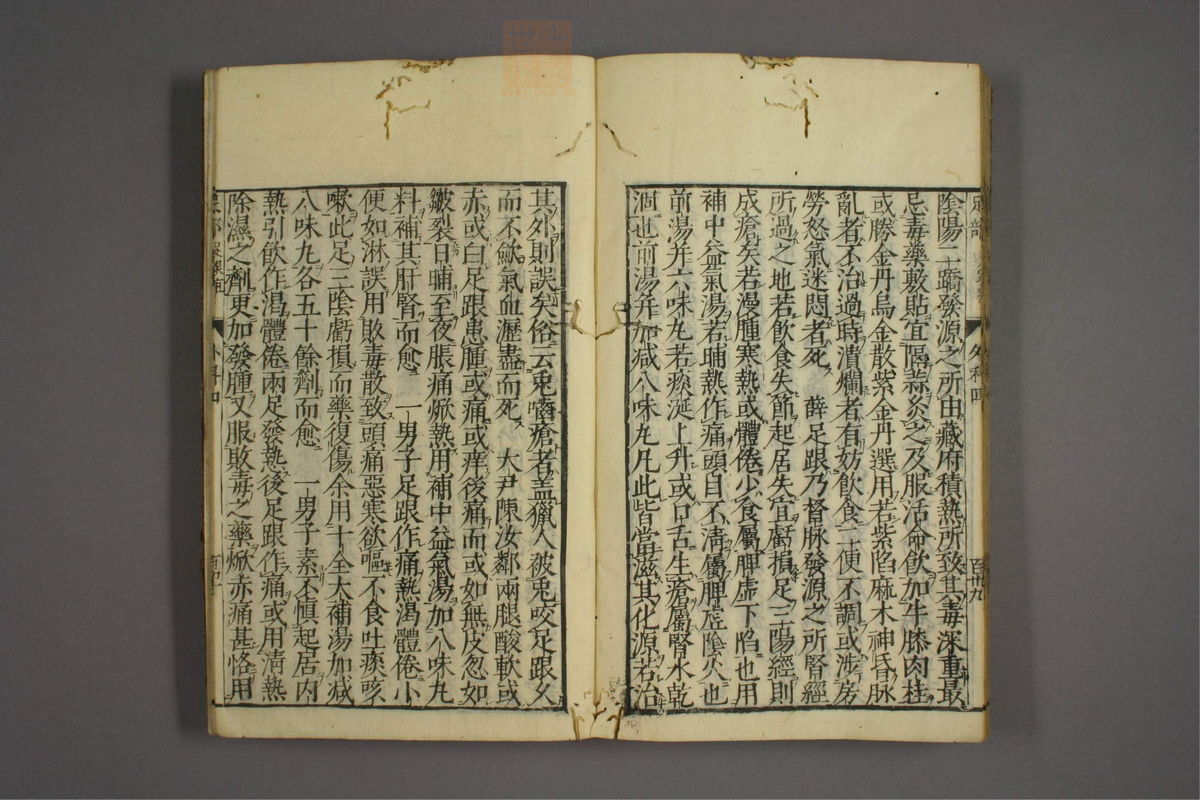 陰陽二蹻發源之所由藏府積熱所致其毒深重最
忌毒藥敷貼宜隔蒜灸之及服活命飲加牛膝肉桂
或勝金丹烏金散紫金丹選用若紫陷麻木神昏脉
亂者不治過時潰爛者有妨飲食二便不調或涉房
勞怒氣迷悶者死 薛足跟乃督脉發源之所腎經
所過之地若飲食失節起居失宜虧損足三陽經則
成瘡矣若漫腫寒熱或體倦少食屬脾虛下陷也用
補中益氣湯若晡熱作痛頭目不淸屬脾虛陰火也
前湯并六味丸若痰涎上升或口舌生瘡屬腎水乾
涸也前湯并加減八味丸凡此皆當滋其化源若治
其外則誤矣俗云兎嚙瘡者盖獵人被兎咬足跟久
而不歛氣血瀝盡而死 大尹陳汝鄰兩腿酸軟或
赤或白足跟患腫或痛或痒後痛而或如無皮忽如
皺裂日晡至夜脹痛焮熱用補中益氣湯加八味丸
料補其肝腎而愈 一男子足跟作痛熱渴體倦小
便如淋誤用敗毒散致頭痛惡寒欲嘔不食吐痰咳
嗽此足三陰虧損而藥復傷余用十全大補湯加減
八味丸各五十餘劑而愈 一男子素不愼起居內
熱引飲作渴體倦兩足發熱後足跟作痛或用清熱
除濕之劑更加發腫又服敗毒之藥焮赤痛甚恪用
外科四